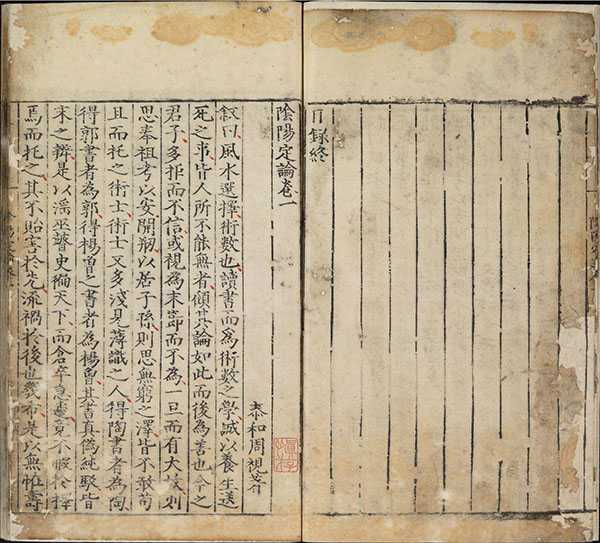 目録終
陰陽定論卷一
泰和周視著
叙曰風水選擇術數也讀書而為術數之學誠以養生送
死之事皆人所不能無者傾其論如此而後為善也今之
君子多拒而不信或視為末節而不為一旦而有大故則
思奉祖考以安開剏以居子孫則思無窮之澤皆不敢苟
且而托之術士術士又多淺見薄識之人得陶書者為陶
得郭書者為郭得楊曾之書者為楊曾其書真偽純駁皆
未之辨是以滛巫瞽史徧天下而倉卒急遽竟不暇於擇
焉而托之其不貽害於先流禍於後也幾希是以無恠壽